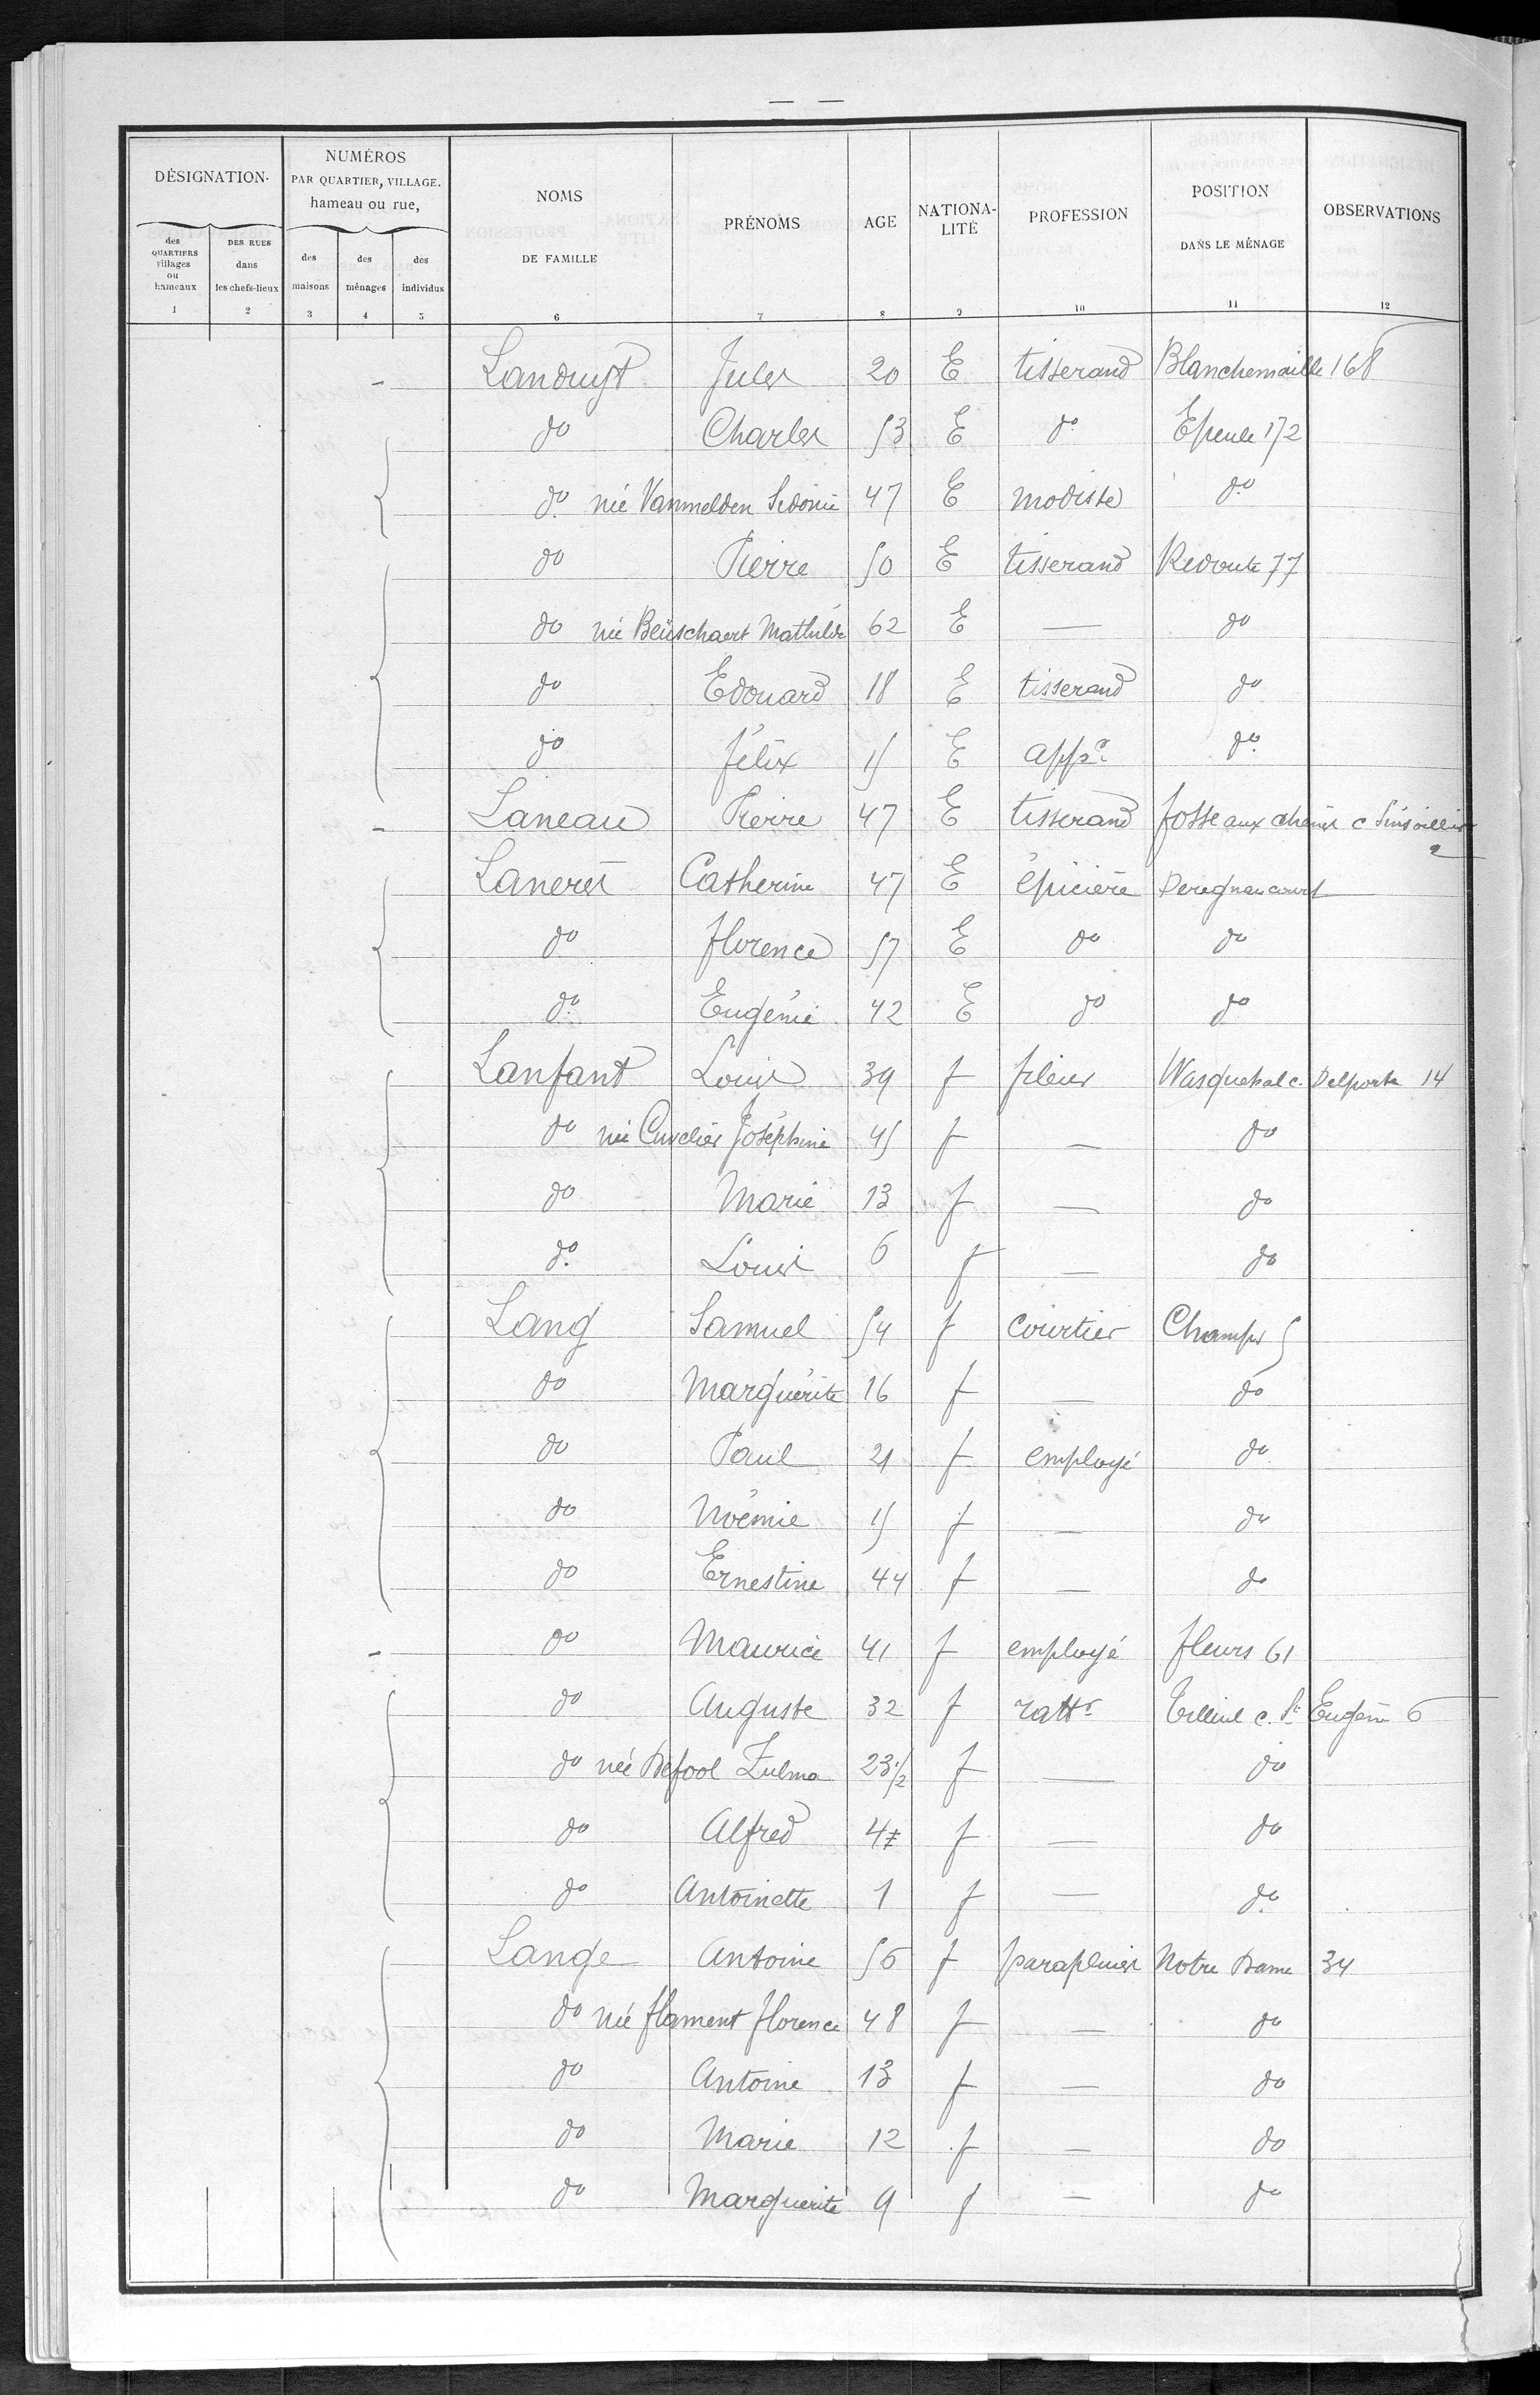 DÉSIGNATION.
NUMÉROS
PAR QUARTIER, VILLAGE.
hameau ou rue,
des QUARTIERS villages ou hameaux
DES RUES dans les chefs-lieux
des maisons
des ménages
des individus
NOMS DE FAMILLE
PRÉNOMS
AGE
NATIONA-LITÉ
PROFESSION
POSITION DANS LE MÉNAGE
OBSERVATIONS
1 2 3 4 5 6 7 8 9 10 11 12
- Landuyt Jules 20 E tisserand Blanchemaille 168
do Charles 53 E do Epeule 172
do née Vanmelden Sidonie 47 E modiste do
do Pierre 50 E tisserand Redoute 77
do née Beüschaert Mathilde 62 E — do
do Edouard 18 E tisserand do
do Félix 15 E app. do
- Laneau Pierre 47 E tisserand fosse aux chênes c 2
Laneret Catherine 47 E épicière Deregnaucourt
do florence 57 E do do
do Eugénie 42 E do do
Lanfant Louis 39 f fileur Wasquehal c. Delporte 14
do née Cuvelier Joséphine 45 f — do
do Marie 13 f — do
do Louis 6 f — do
Lang Samuel 54 f courtier Champs 5
do Marguerite 16 f — do
do Paul 21 f employé do
do Noémie 15 f — do
do Ernestine 44 f — do
- do Maurice 41 f employé fleurs 61
do Auguste 32 f ratt. Tilleul c. St Eugène 6
do née Défool Zulma 23 1/2 f — do
do Alfred 4 f — do
do Antoinette 1 f — do
Lange Antoine 56 f parapluies Notre Dame 34
do née flament florence 48 f — do
do Antoine 13 f — do
do Marie 12 f — do
do Marguerite 9 f — do